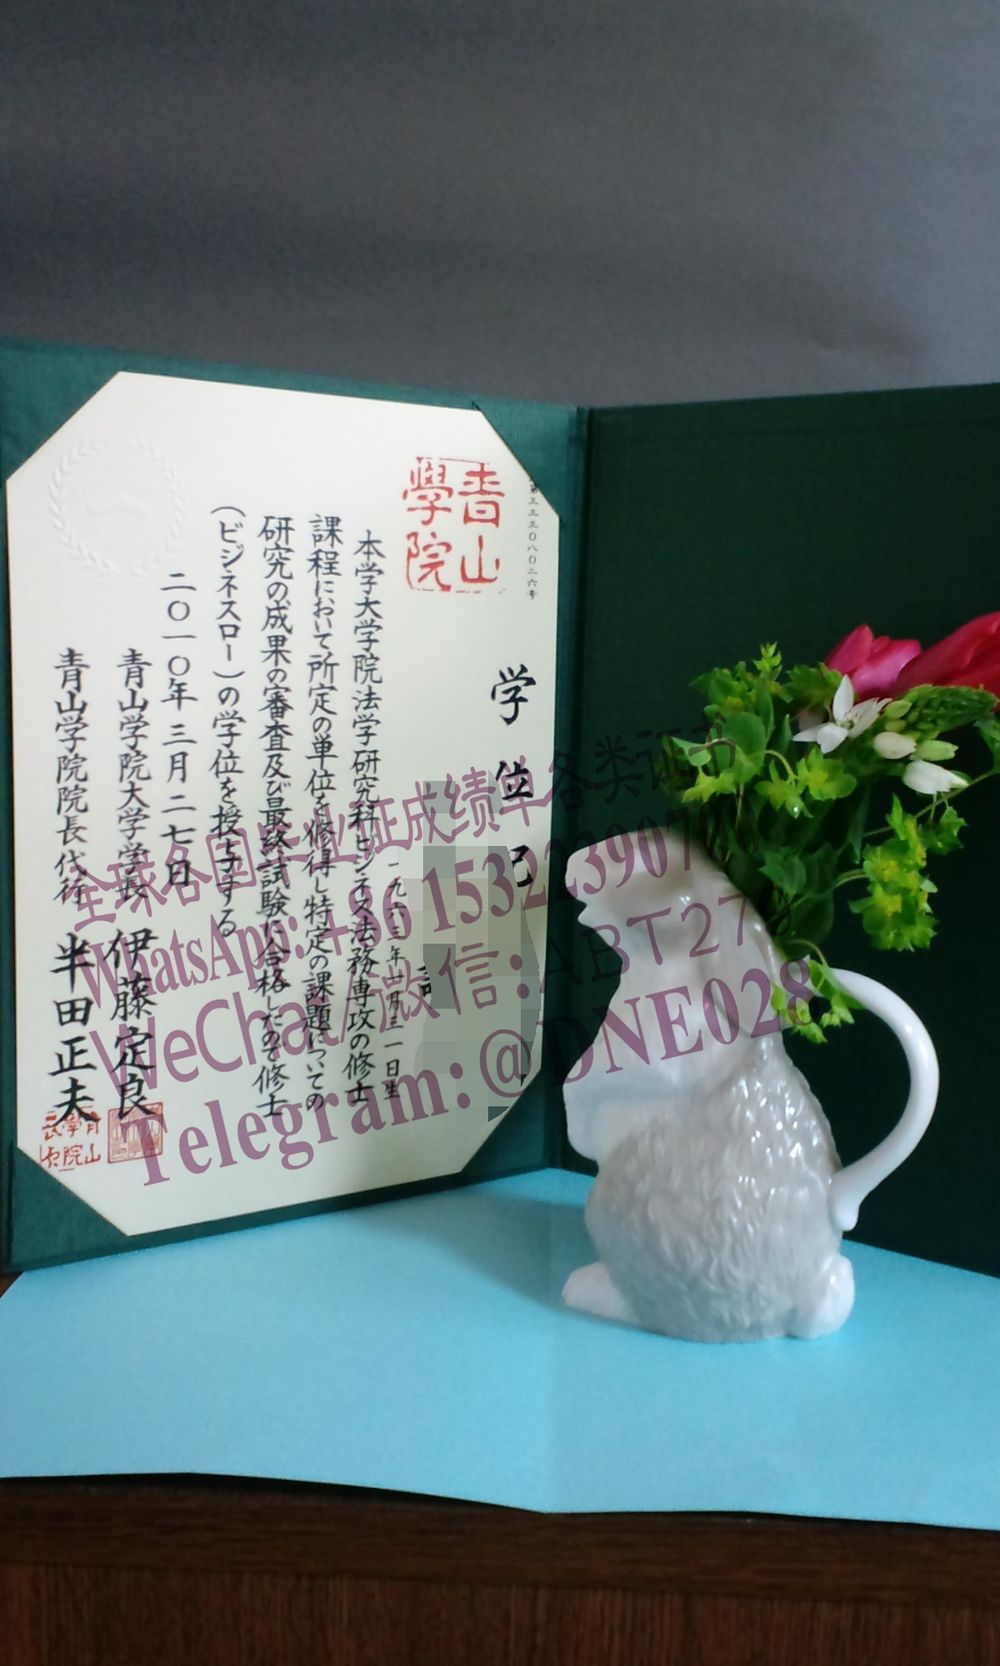 青山
學院
第三三三〇八〇二六号
学位記
一九六三年十月三一日生
本学大学院法学研究科ビジネス法務専攻の修士
課程において所定の単位を修得し特定の課題についての
研究の成果の審査及び最終試験に合格したので修士
(ビジネスロー)の学位を授与する
二〇一〇年三月二七日
青山学院大学学長 伊藤定良
青山学院院長代行 半田正夫
全球各国毕业证成绩单各类证书
WhatsApp:+86 15322390700
WeChat/微信:ABT278
Telegram:@DNE028